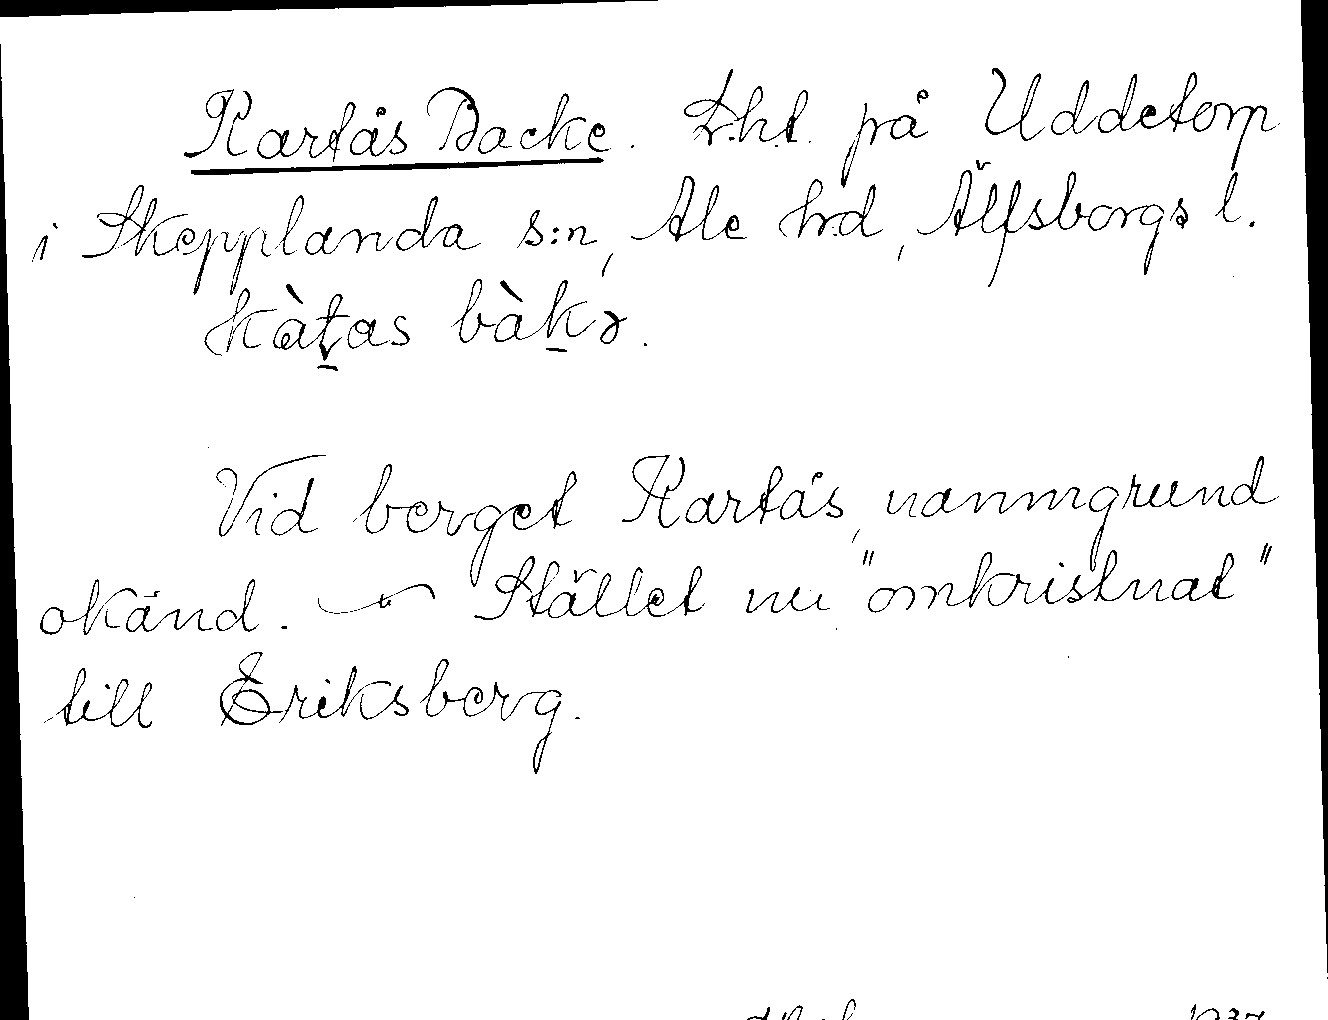 Kartås Backe. Lht. på Uddetorp
i Skepplanda s:n, Ale hd, Älfsborgs l.
kàt̠as bàk̠ə.
Vid berget Kartås, namngrund
okänd. — Stället nu "omkristnat"
till Eriksberg.